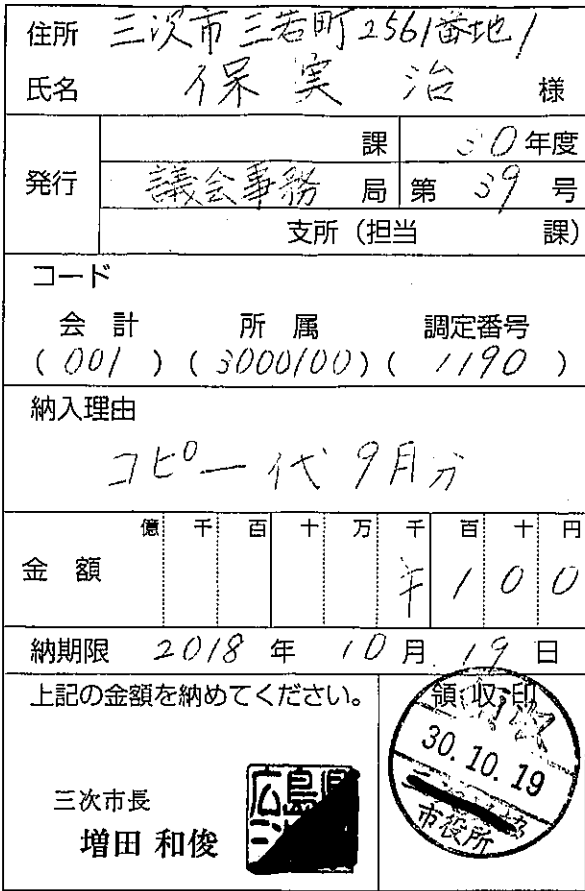 住所 三次市三若町2561番地1
氏名 保実 治 様
発行
課 30年度
議会事務 局 第 39 号
支所（担当 課）
コード
会計 所属 調定番号
(001) (3000100) (1190)
納入理由
コピー代 9月分
億 千 百 十 万 千 百 十 円
金額 ¥100
納期限 2018年10月19日
上記の金額を納めてください。
領収印
30.10.19
市役所
三次市長
増田 和俊
広島県